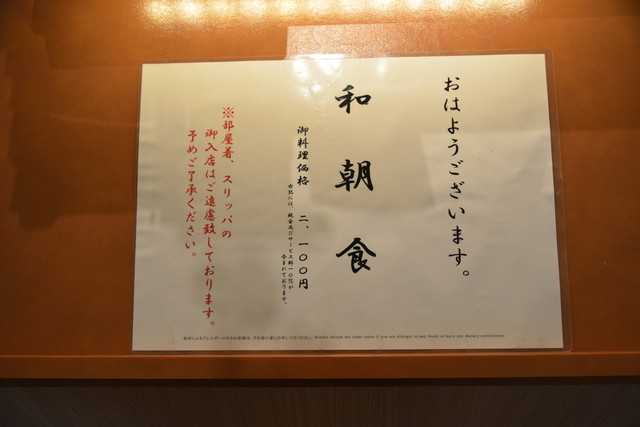 おはようございます。
和朝食
御料理価格 二、一〇〇円
右記には、税金及びサービス料一〇%が
含まれております。
※部屋着、スリッパの
御入店はご遠慮致しております。
予めご了承ください。
Kindly inform the order taker if you are allergic to any foods or have any dietary restrictions.